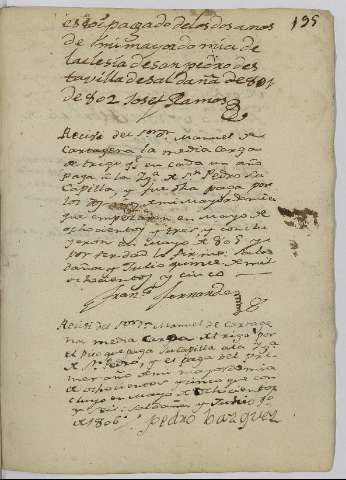 135
estoi pagado de los dos anos
de mi mayordomia de
la iglesia de san pedro des
ta villa de saldaña de 801
de 802 Josef Ramos
Recivi del Sr Dn Manuel de
Cartagena la media Carga
de trigo qe en cada un año
paga a la Yga de Sn Pedro su
Capilla, y que sta paga por
los de mi Mayordomia
que empezaron en Mayo de
ochocientos y tres, y conclu
yeron en Mayo de 805 y
por verdad lo firme: Salda
ña y Julio quince de mil
ochocientos y cinco
Franco Fernandez
Recivi del Sr Dn Manuel de Cartage
na media Carga de trigo por
el que paga su Capilla a la
de Sn Pedro, y es paga del pri
mer año de mi mayordomia
de ochocientos y cinco que con
cluyo en Mayo de ochocientos
y seis: Saldaña y Junio
de 1806 Pedro Bazquez